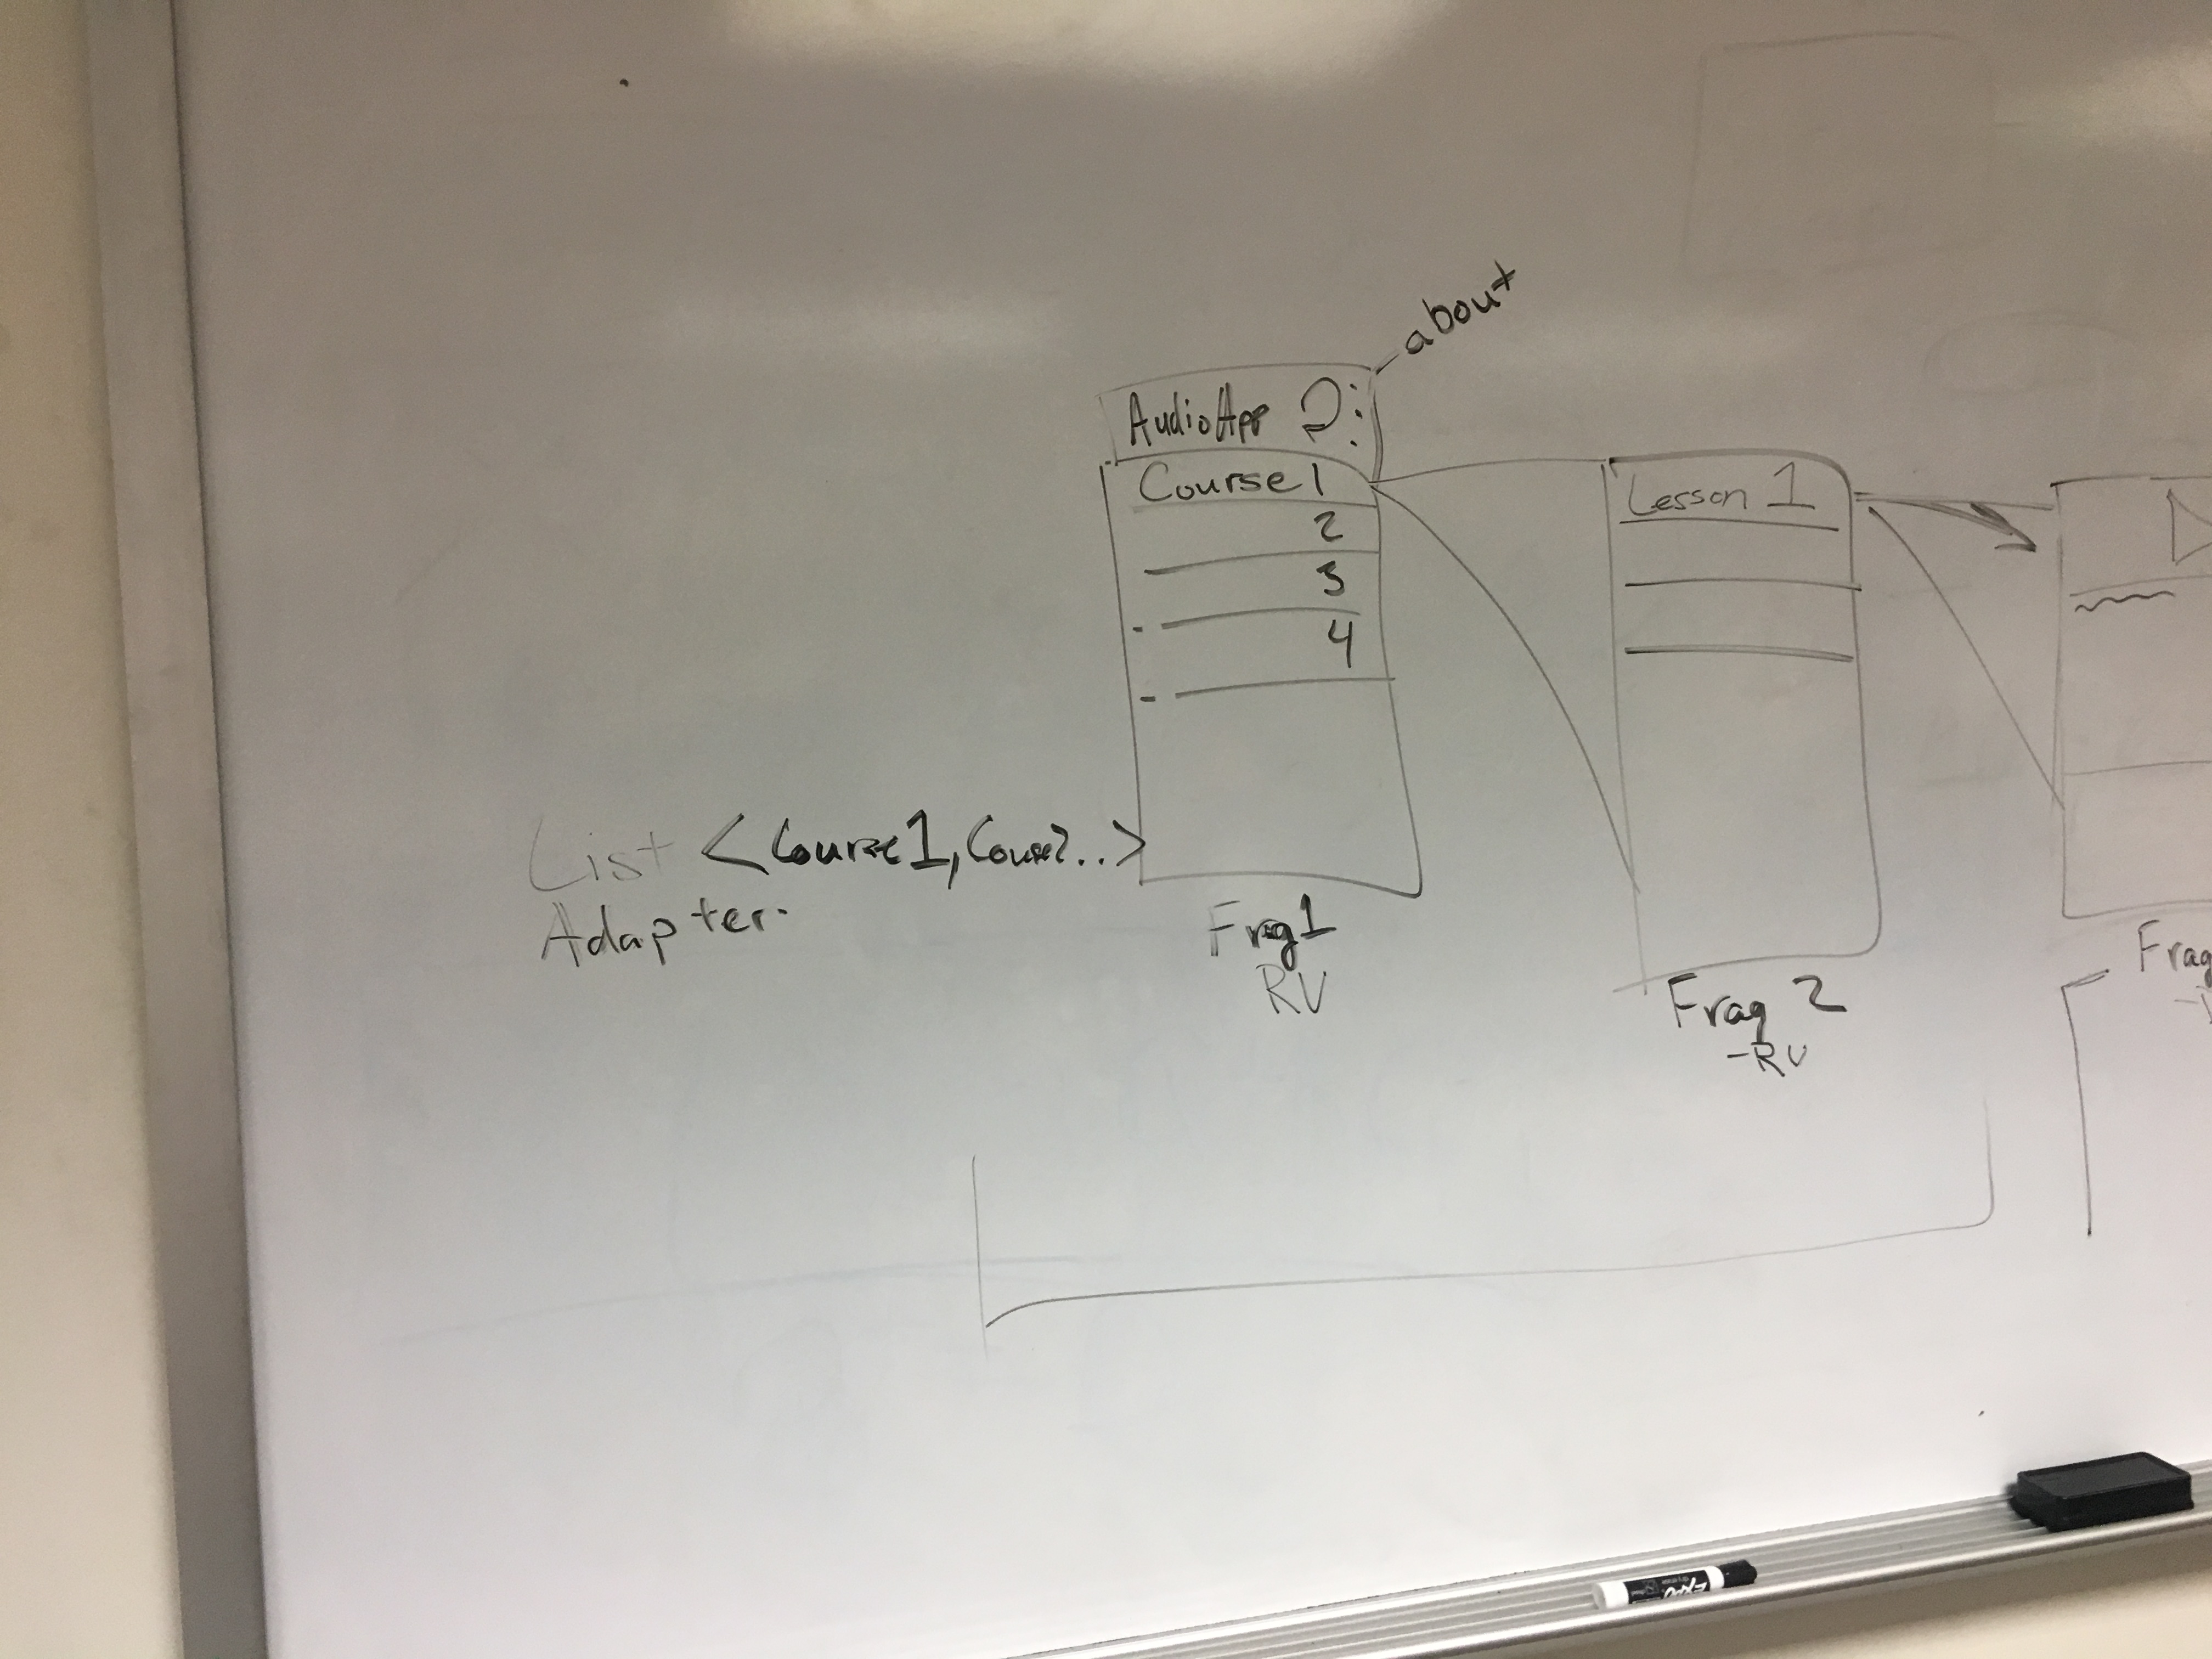 about
AudioApp
Course 1
2
3
4
Lesson 1
List <Course1, Course2..>
Adapter.
Frag 1
RV
Frag 2
-RV
Frag
EXPO